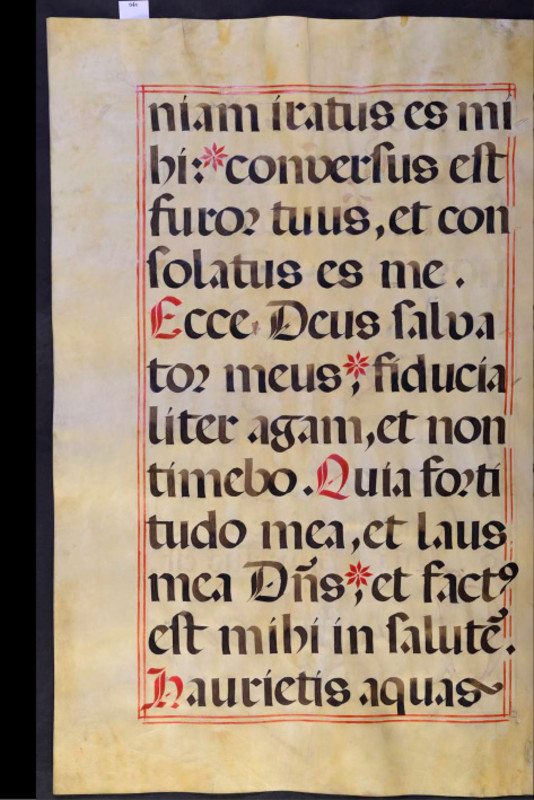 niam iratus es mi
hi:*conversus est
furor tuus, et con
solatus es me.
Ecce Deus salva
tor meus*; fiducia
liter agam, et non
timebo. Quia forti
tudo mea, et laus
mea Dñs*; et factꝰ
est mihi in salutē.
Haurietis aquas~